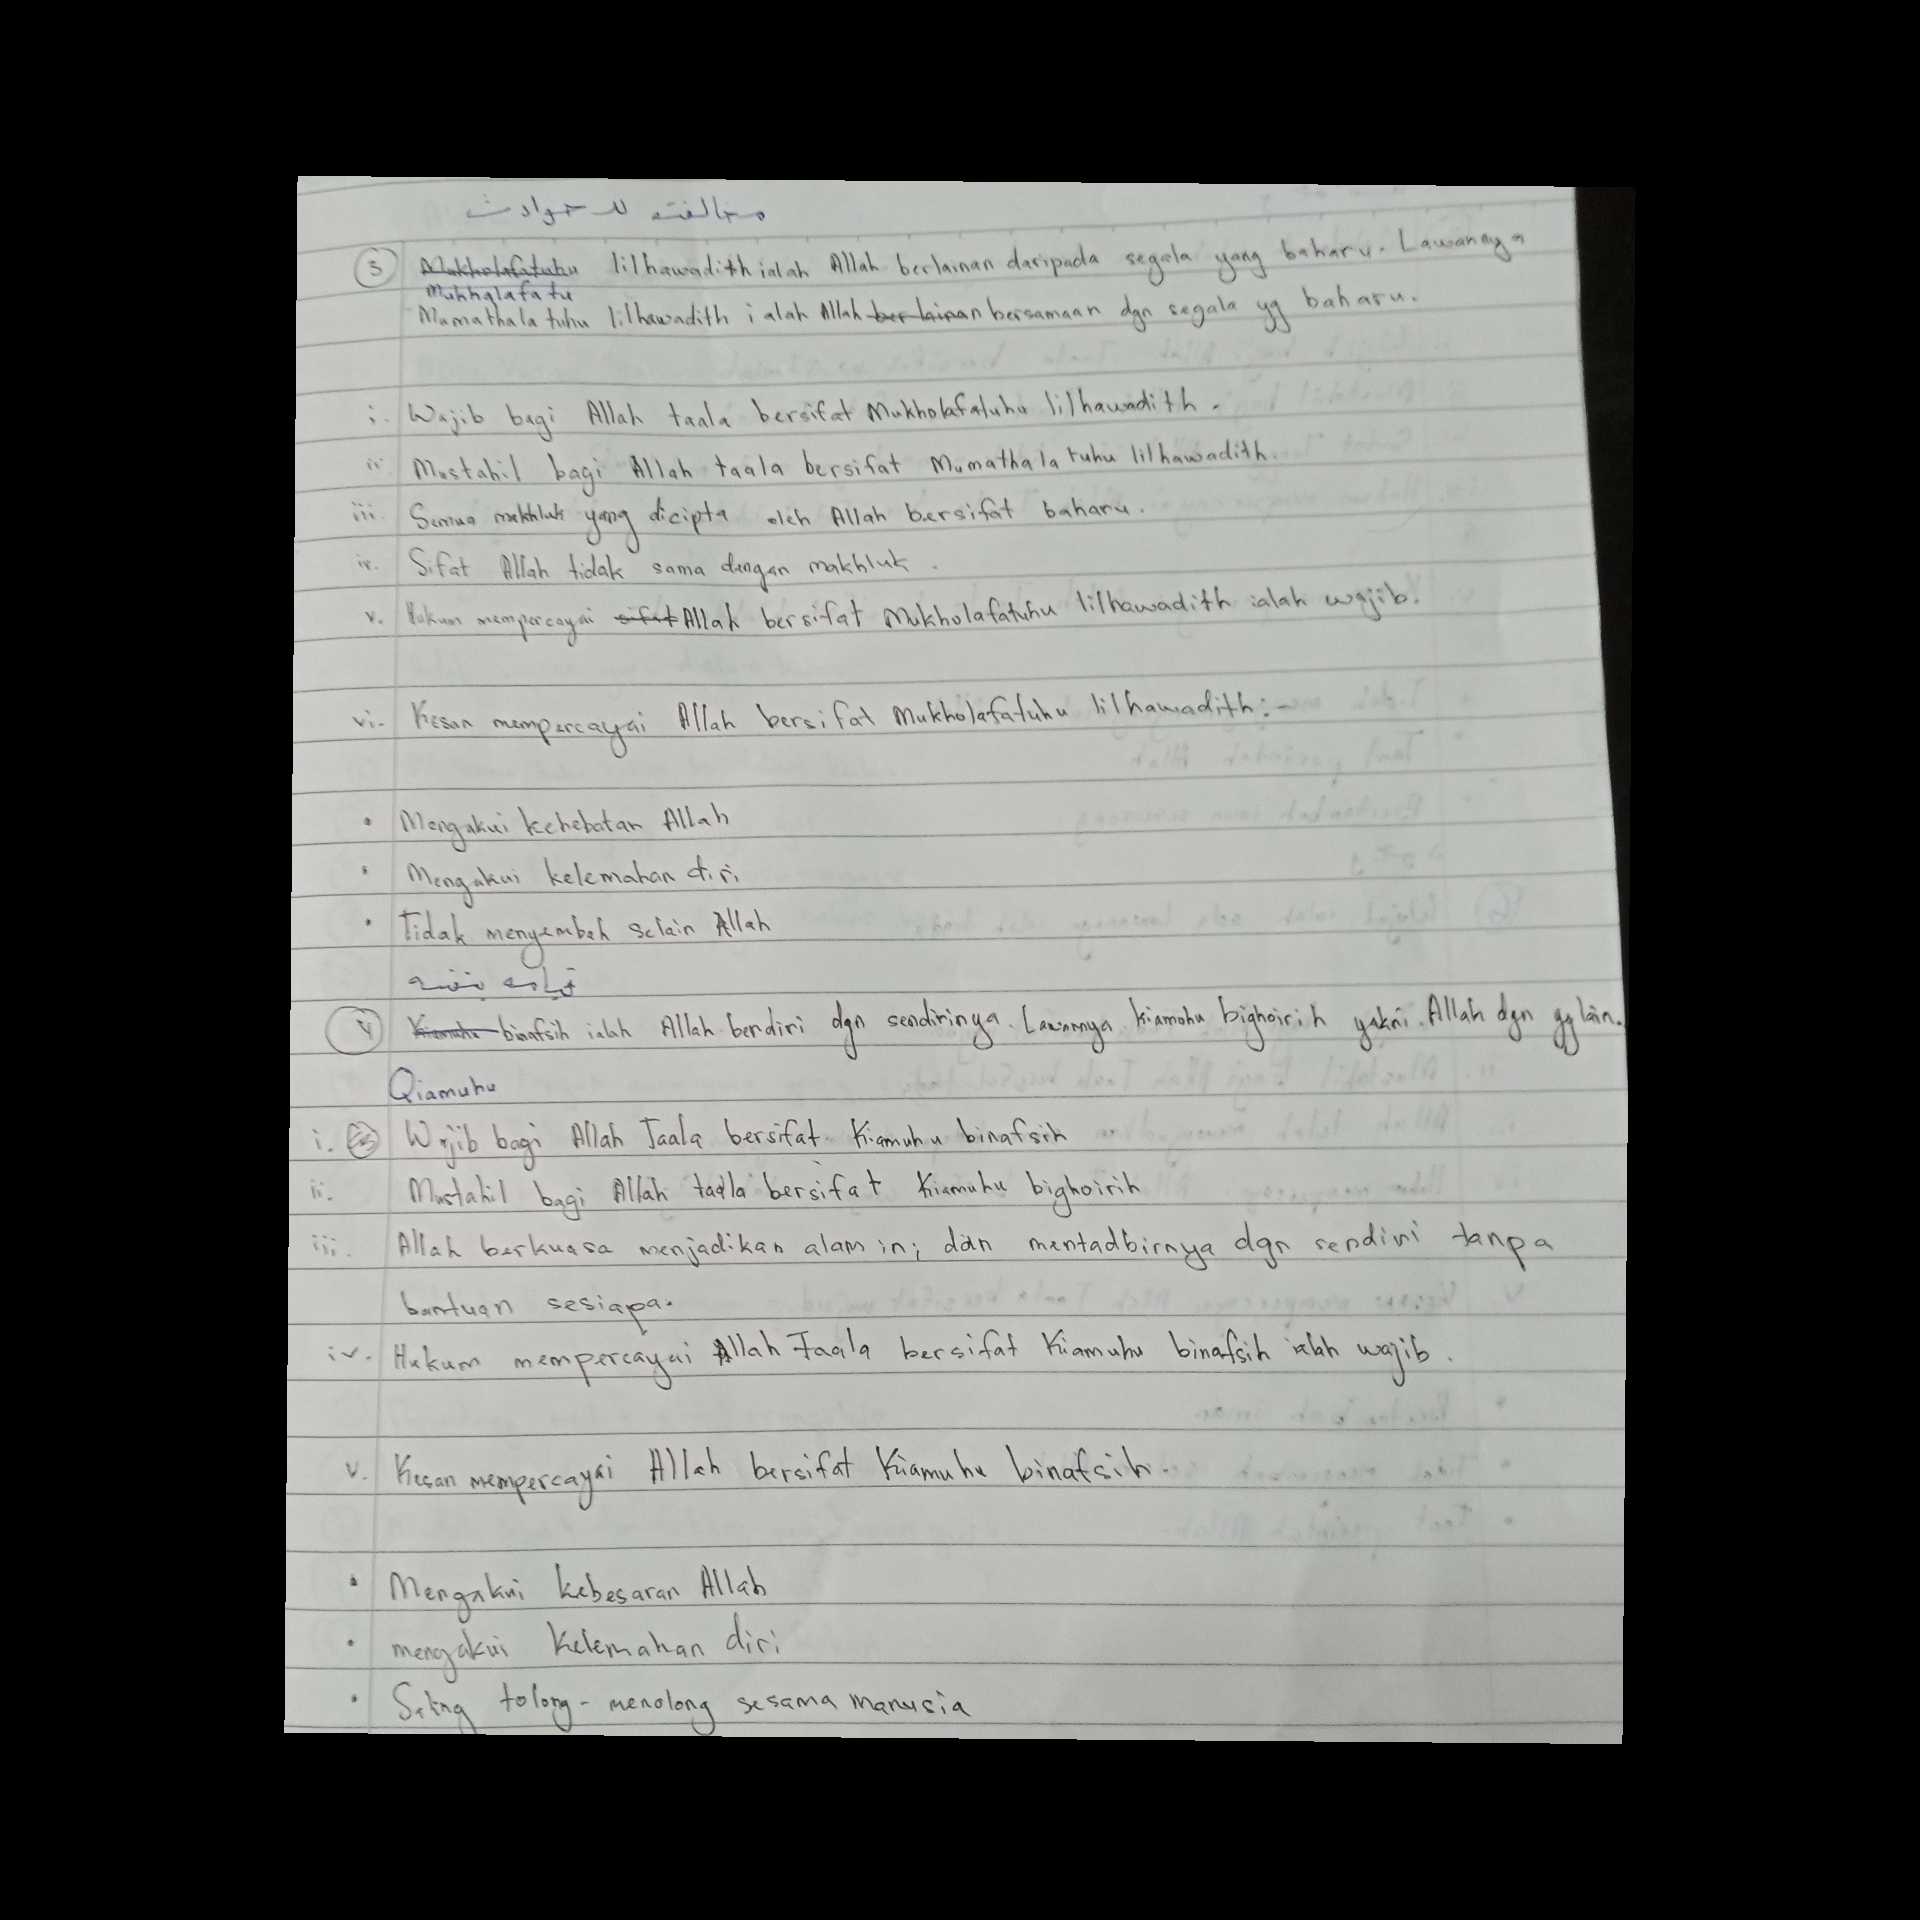 مخالفته للحوادث
3 Mukholafatuhu lilhawadith ialah Allah berlainan daripada segala yang baharu. Lawannya
Mukhalafatu
Mumathalatuhu lilhawadith ialah Allah berlainan bersamaan dgn segala yg baharu.
i. Wajib bagi Allah taala bersifat Mukholafatuhu lilhawadith.
ii. Mustahil bagi Allah taala bersifat Mumathalatuhu lilhawadith.
iii. Semua makhluk yang dicipta oleh Allah bersifat baharu.
iv. Sifat Allah tidak sama dengan makhluk.
v. Hukum mempercayai sifat Allah bersifat Mukholafatuhu lilhawadith ialah wajib.
vi. Kesan mempercayai Allah bersifat Mukholafatuhu lilhawadith:-
• Mengakui kehebatan Allah
• Mengakui kelemahan diri
• Tidak menyembah selain Allah
قيامه بنفسه
4 Kiamuhu binafsih ialah Allah berdiri dgn sendirinya. Lawannya kiamuhu bighoirih yakni Allah dgn yg lain.
Qiamuhu
i. Wajib bagi Allah Taala bersifat Kiamuhu binafsih
ii. Mustahil bagi Allah taala bersifat Kiamuhu bighoirih
iii. Allah berkuasa menjadikan alam ini dan mentadbirnya dgn sendiri tanpa
bantuan sesiapa.
iv. Hukum mempercayai Allah Taala bersifat Kiamuhu binafsih ialah wajib.
v. Kesan mempercayai Allah bersifat Kiamuhu binafsih.
• Mengakui kebesaran Allah
• mengakui Kelemahan diri
• Saling tolong-menolong sesama manusia